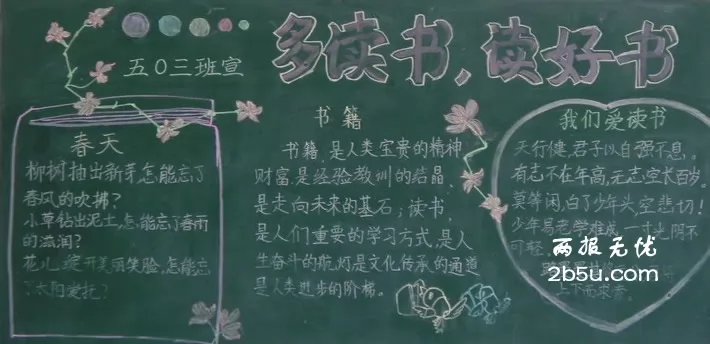 多读书,读好书
五〇三班宣
春天
柳树抽出新芽,怎能忘了
春风的吹拂?
小草钻出泥土,怎能忘了春雨
的滋润?
花儿绽开美丽笑脸,怎能忘
了太阳爱抚?
书籍
书籍,是人类宝贵的精神
财富,是经验教训的结晶,
是走向未来的基石;读书,
是人们重要的学习方式,是人
生奋斗的航灯是文化传承的通道
是人类进步的阶梯。
我们爱读书
天行健,君子以自强不息。
有志不在年高,无志空长百岁。
莫等闲,白了少年头,空悲切!
少年易老学难成,一寸光阴不
可轻。
上下而求索。
两报无忧
2b5u.com